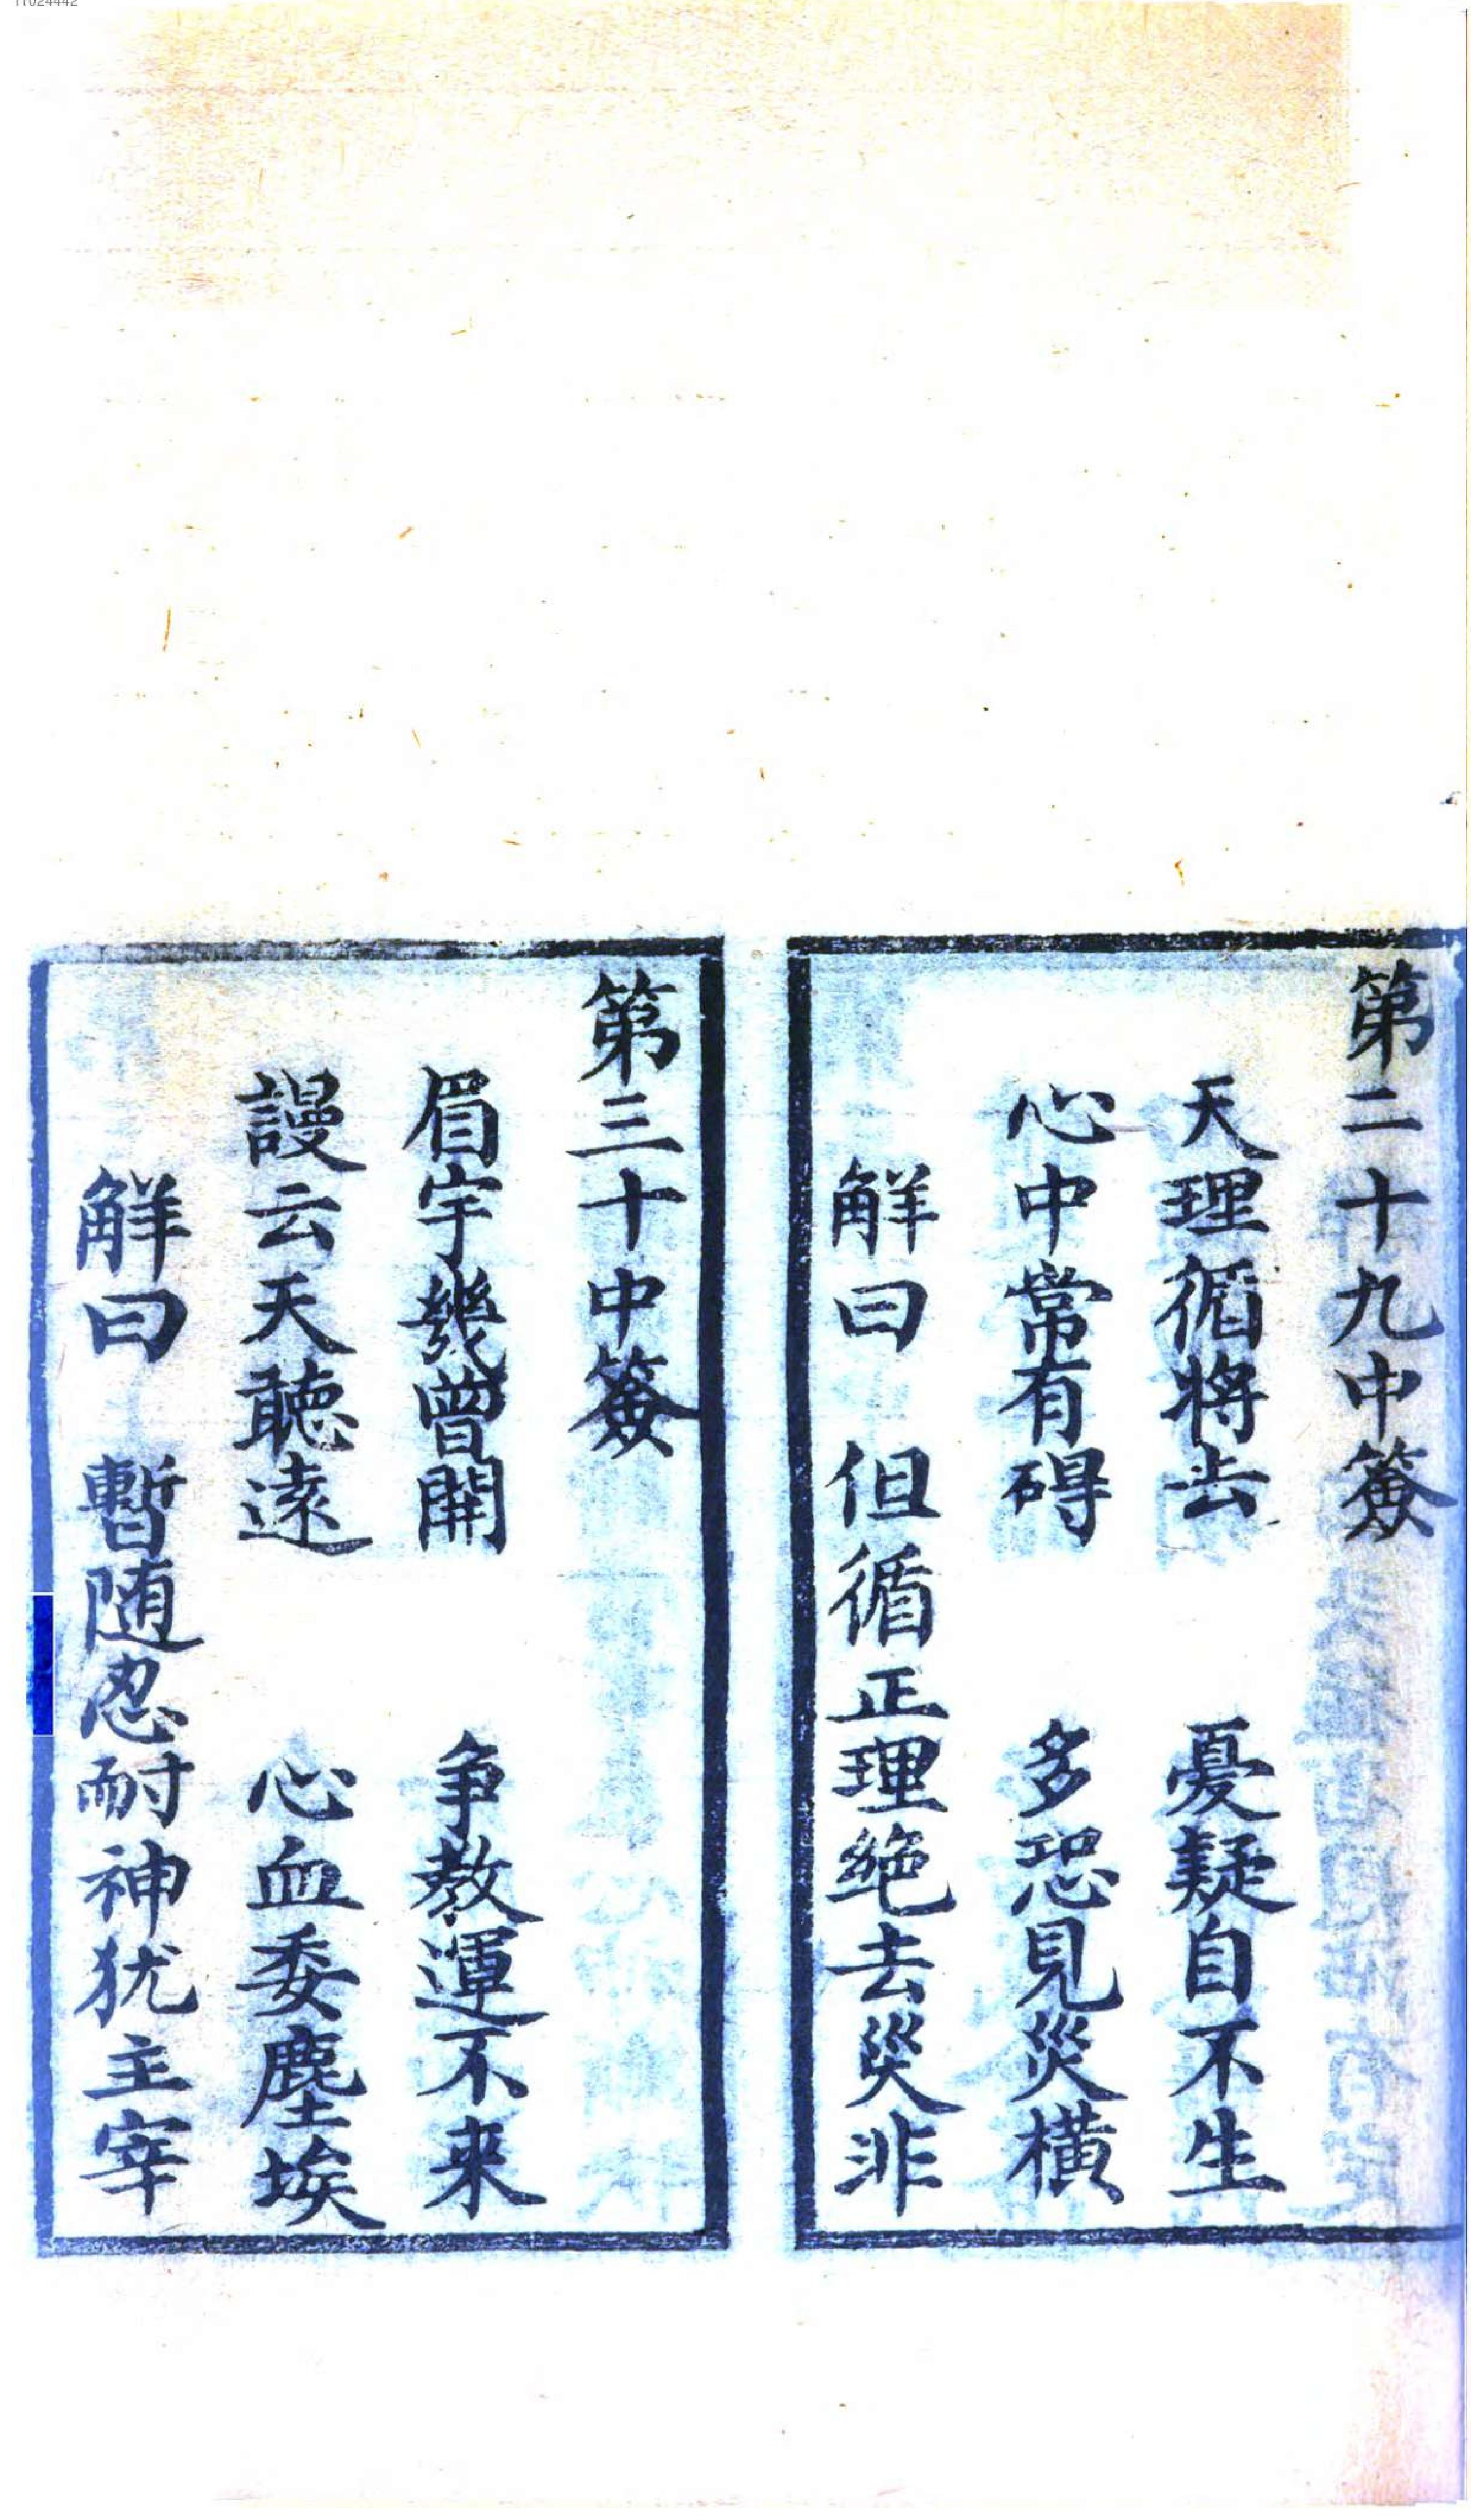 第二十九中簽
天理循將去　憂疑自不生
心中常有碍　多恐見災横
解曰　但循正理絶去災非
第三十中簽
眉宇幾曽開　争教運不来
謾云天聴遠　心血委塵埃
解曰　暫随忍耐神犹主宰